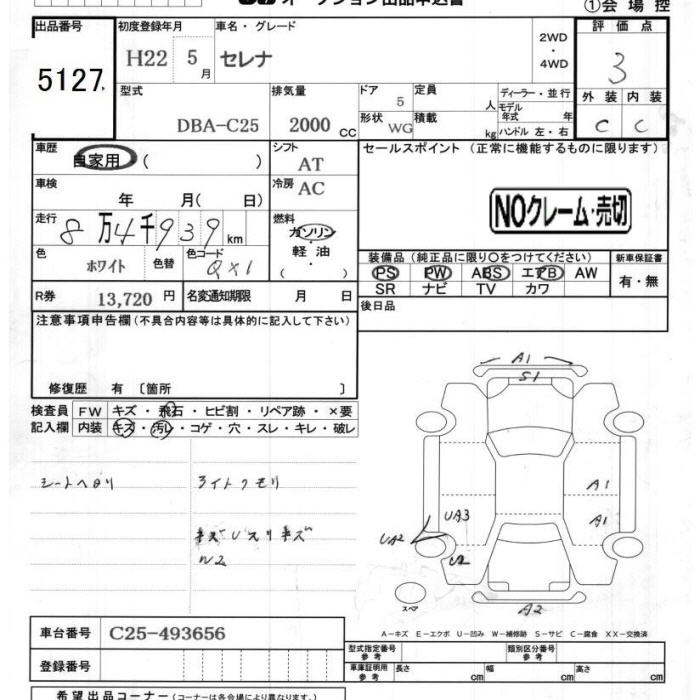 オークション出品申込書
①会場控
出品番号 5127
初度登録年月 H22 5月
車名・グレード セレナ
2WD・4WD
評価点 3
型式 DBA-C25
排気量 2000 CC
ドア 5
定員 人
ディーラー・並行
モデル年式 年
形状 WG
積載 kg
ハンドル 左・右
外装 C
内装 C
車歴 自家用 ( )
シフト AT
セールスポイント (正常に機能するものに限ります)
車検 年 月( 日)
冷房 AC
NOクレーム・売切
走行 8万4千939 km
燃料 ガソリン・軽油・( )
色 ホワイト 色替
色コード QX1
装備品(純正品に限り○をつけてください)
PS PW ABS エアB AW
SR ナビ TV カワ
新車保証書 有・無
R券 13,720 円
名変通知期限 月 日
後日品
注意事項申告欄(不具合内容等は具体的に記入して下さい)
修復歴 有〔箇所 〕
検査員記入欄
FW キズ・飛石・ヒビ割・リペア跡・×要
内装 キズ・汚レ・コゲ・穴・スレ・キレ・破レ
シートヘタリ
ライトクモリ
A1
S1
A1
UA3
A1
UA2
A2
スペア
A-キズ E-エクボ U-凹み W-補修跡 S-サビ C-腐食 XX-交換済
車台番号 C25-493656
登録番号
型式指定番号 参考
類別区分番号 参考
車庫証明用 参考
長さ cm
幅 cm
高さ cm
希望出品コーナー(コーナーは各会場により異なります)